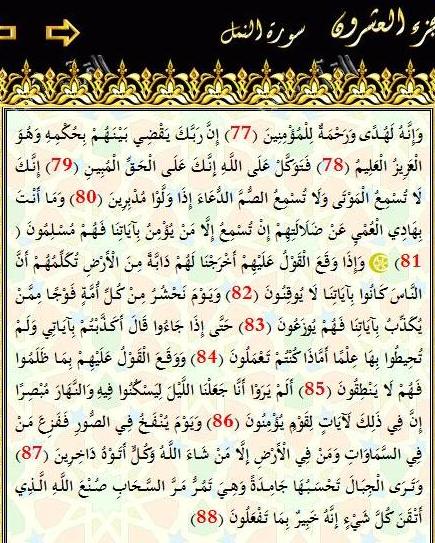 جزء العشرون سورة النمل
وَإِنَّهُ لَهُدًى وَرَحْمَةٌ لِّلْمُؤْمِنِينَ (77) إِنَّ رَبَّكَ يَقْضِي بَيْنَهُمْ بِحُكْمِهِ وَهُوَ
الْعَزِيزُ الْعَلِيمُ (78) فَتَوَكَّلْ عَلَى اللَّهِ إِنَّكَ عَلَى الْحَقِّ الْمُبِينِ (79) إِنَّكَ
لَا تُسْمِعُ الْمَوْتَى وَلَا تُسْمِعُ الصُّمَّ الدُّعَاءَ إِذَا وَلَّوْا مُدْبِرِينَ (80) وَمَا أَنْتَ
بِهَادِي الْعُمْيِ عَنْ ضَلَالَتِهِمْ إِنْ تُسْمِعُ إِلَّا مَنْ يُؤْمِنُ بِآيَاتِنَا فَهُمْ مُسْلِمُونَ (
81) وَإِذَا وَقَعَ الْقَوْلُ عَلَيْهِمْ أَخْرَجْنَا لَهُمْ دَابَّةً مِنَ الْأَرْضِ تُكَلِّمُهُمْ أَنَّ
النَّاسَ كَانُوا بِآيَاتِنَا لَا يُوقِنُونَ (82) وَيَوْمَ نَحْشُرُ مِنْ كُلِّ أُمَّةٍ فَوْجًا مِمَّنْ
يُكَذِّبُ بِآيَاتِنَا فَهُمْ يُوزَعُونَ (83) حَتَّى إِذَا جَاءُوا قَالَ أَكَذَّبْتُمْ بِآيَاتِي وَلَمْ
تُحِيطُوا بِهَا عِلْمًا أَمَّاذَا كُنْتُمْ تَعْمَلُونَ (84) وَوَقَعَ الْقَوْلُ عَلَيْهِمْ بِمَا ظَلَمُوا
فَهُمْ لَا يَنْطِقُونَ (85) أَلَمْ يَرَوْا أَنَّا جَعَلْنَا اللَّيْلَ لِيَسْكُنُوا فِيهِ وَالنَّهَارَ مُبْصِرًا
إِنَّ فِي ذَلِكَ لَآيَاتٍ لِقَوْمٍ يُؤْمِنُونَ (86) وَيَوْمَ يُنْفَخُ فِي الصُّورِ فَفَزِعَ مَنْ
فِي السَّمَاوَاتِ وَمَنْ فِي الْأَرْضِ إِلَّا مَنْ شَاءَ اللَّهُ وَكُلٌّ أَتَوْهُ دَاخِرِينَ (87)
وَتَرَى الْجِبَالَ تَحْسَبُهَا جَامِدَةً وَهِيَ تَمُرُّ مَرَّ السَّحَابِ صُنْعَ اللَّهِ الَّذِي
أَتْقَنَ كُلَّ شَيْءٍ إِنَّهُ خَبِيرٌ بِمَا تَفْعَلُونَ (88)